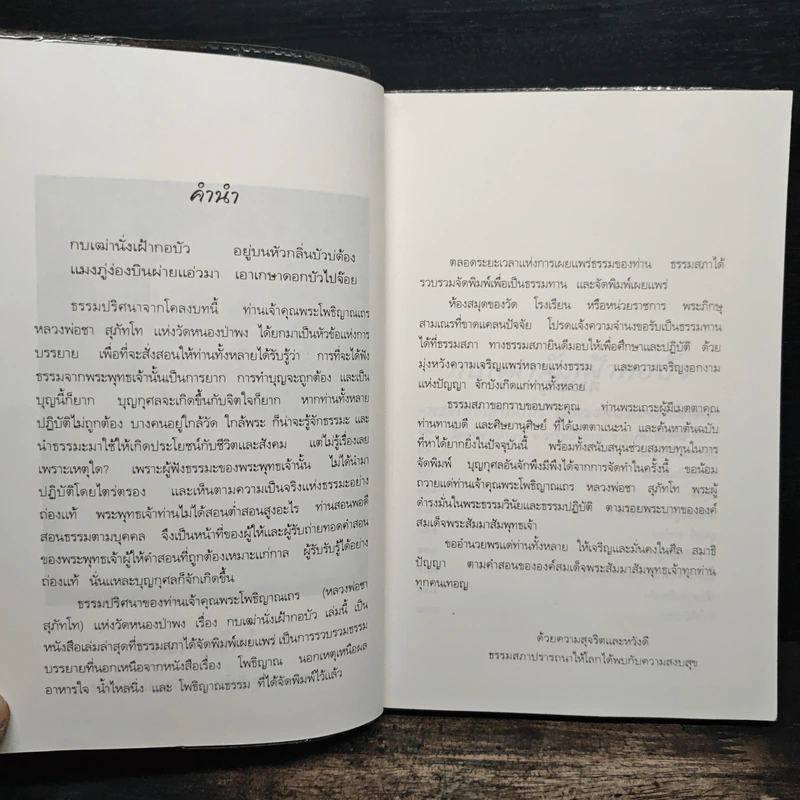 คำนำ
กบเฒ่านั่งเฝ้ากอบัว อยู่บนหัวกลิ่นบัวบ่ต้อง
แมงภู่ง่องบินผ่ายแอ่วมา เอาเกษาดอกบัวไปจ๊อย
ธรรมปริศนาจากโคลงบทนี้ ท่านเจ้าคุณพระโพธิญาณเถร
หลวงพ่อชา สุภัทโท แห่งวัดหนองป่าพง ได้ยกมาเป็นหัวข้อแห่งการ
บรรยาย เพื่อที่จะสั่งสอนให้ท่านทั้งหลายได้รับรู้ว่า การที่จะได้ฟัง
ธรรมจากพระพุทธเจ้านั้นเป็นการยาก การทำบุญจะถูกต้อง และเป็น
บุญนี้ก็ยาก บุญกุศลจะเกิดขึ้นกับจิตใจก็ยาก หากท่านทั้งหลาย
ปฏิบัติไม่ถูกต้อง บางคนอยู่ใกล้วัด ใกล้พระ ก็น่าจะรู้จักธรรมะ และ
นำธรรมะมาใช้ให้เกิดประโยชน์กับชีวิตและสังคม แต่ไม่รู้เรื่องเลย
เพราะเหตุใด? เพราะผู้ฟังธรรมะของพระพุทธเจ้านั้น ไม่ได้นำมา
ปฏิบัติโดยไตร่ตรอง และเห็นตามความเป็นจริงแห่งธรรมะอย่าง
ถ่องแท้ พระพุทธเจ้าท่านไม่ได้สอนต่ำสอนสูงอะไร ท่านสอนพอดี
สอนธรรมตามบุคคล จึงเป็นหน้าที่ของผู้ให้และผู้รับถ่ายทอดคำสอน
ของพระพุทธเจ้าผู้ให้คำสอนที่ถูกต้องเหมาะแก่กาล ผู้รับรับรู้ได้อย่าง
ถ่องแท้ นั่นแหละบุญกุศลก็จักเกิดขึ้น
ธรรมปริศนาของท่านเจ้าคุณพระโพธิญาณเถร (หลวงพ่อชา
สุภัทโท) แห่งวัดหนองป่าพง เรื่อง กบเฒ่านั่งเฝ้ากอบัว เล่มนี้ เป็น
หนังสือเล่มล่าสุดที่ธรรมสภาได้จัดพิมพ์เผยแพร่ เป็นการรวบรวมธรรม
บรรยายที่นอกเหนือจากหนังสือเรื่อง โพธิญาณ นอกเหตุเหนือผล
อาหารใจ น้ำไหลนิ่ง และ โพธิญาณธรรม ที่ได้จัดพิมพ์ไว้แล้ว
ตลอดระยะเวลาแห่งการเผยแพร่ธรรมของท่าน ธรรมสภาได้
รวบรวมจัดพิมพ์เพื่อเป็นธรรมทาน และจัดพิมพ์เผยแพร่
ห้องสมุดของวัด โรงเรียน หรือหน่วยราชการ พระภิกษุ
สามเณรที่ขาดแคลนปัจจัย โปรดแจ้งความจำนงขอรับเป็นธรรมทาน
ได้ที่ธรรมสภา ทางธรรมสภายินดีมอบให้เพื่อศึกษาและปฏิบัติ ด้วย
มุ่งหวังความเจริญแพร่หลายแห่งธรรม และความเจริญงอกงาม
แห่งปัญญา จักบังเกิดแก่ท่านทั้งหลาย
ธรรมสภาขอกราบขอบพระคุณ ท่านพระเถระผู้มีเมตตาคุณ
ท่านทานบดี และศิษยานุศิษย์ ที่ได้เมตตาแนะนำ และค้นหาต้นฉบับ
ที่หาได้ยากยิ่งในปัจจุบันนี้ พร้อมทั้งสนับสนุนช่วยสมทบทุนในการ
จัดพิมพ์ บุญกุศลอันจักพึงมีพึงได้จากการจัดทำในครั้งนี้ ขอน้อม
ถวายแด่ท่านเจ้าคุณพระโพธิญาณเถร หลวงพ่อชา สุภัทโท พระผู้
ดำรงมั่นในพระธรรมวินัยและธรรมปฏิบัติ ตามรอยพระบาทขององค์
สมเด็จพระสัมมาสัมพุทธเจ้า
ขออำนวยพรแด่ท่านทั้งหลาย ให้เจริญและมั่นคงในศีล สมาธิ
ปัญญา ตามคำสอนขององค์สมเด็จพระสัมมาสัมพุทธเจ้าทุกท่าน
ทุกคนเทอญ
ด้วยความสุจริตและหวังดี
ธรรมสภาปรารถนาให้โลกได้พบกับความสงบสุข